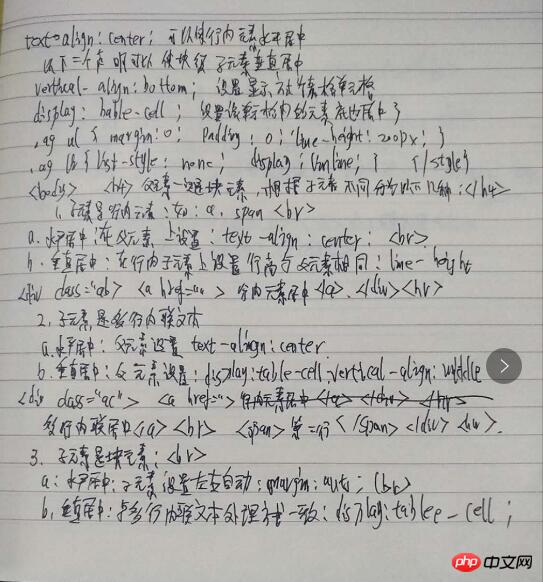 text-align: center; 可以使行内元素水平居中
以下二个声明可以使块级子元素垂直居中
vertical-align: bottom; 设置显示方式为表格单元格
display: table-cell; 设置该单元格内的元素在底居中 }
.ag ul { margin: 0; padding: 0; line-height: 200px; }
.ag li { list-style: none; display: inline; } </style>
<body> <h4> 父元素一定是块元素, 根据子元素不同分为以下几种: </h4>
1, 子元素是行内元素: 如: a, span <br>
a. 水平居中: 在父元素上设置: text-align: center; <br>
b. 垂直居中: 在行内子元素上设置行高与父元素相同: line-height
<div class="ab"> <a href=""> 行内元素居中 </a>. </div> <hr>
2. 子元素是多行内联文本
a. 水平居中: 父元素设置 text-align: center
b. 垂直居中: 父元素设置: display: table-cell; vertical-align: middle
<div class="ac"> <a href=""> 行内元素居中 </a> </div> <hr>
多行内联居中 </a> <br> <span> 第二行 </span> </div> <hr>.
3. 子元素是块元素: <br>
a: 水平居中: 子元素设置左右自动: margin: auto; <br>
b, 垂直居中: 与多行内联文本处理方式一致: display: tablee-cell;
php 中文网